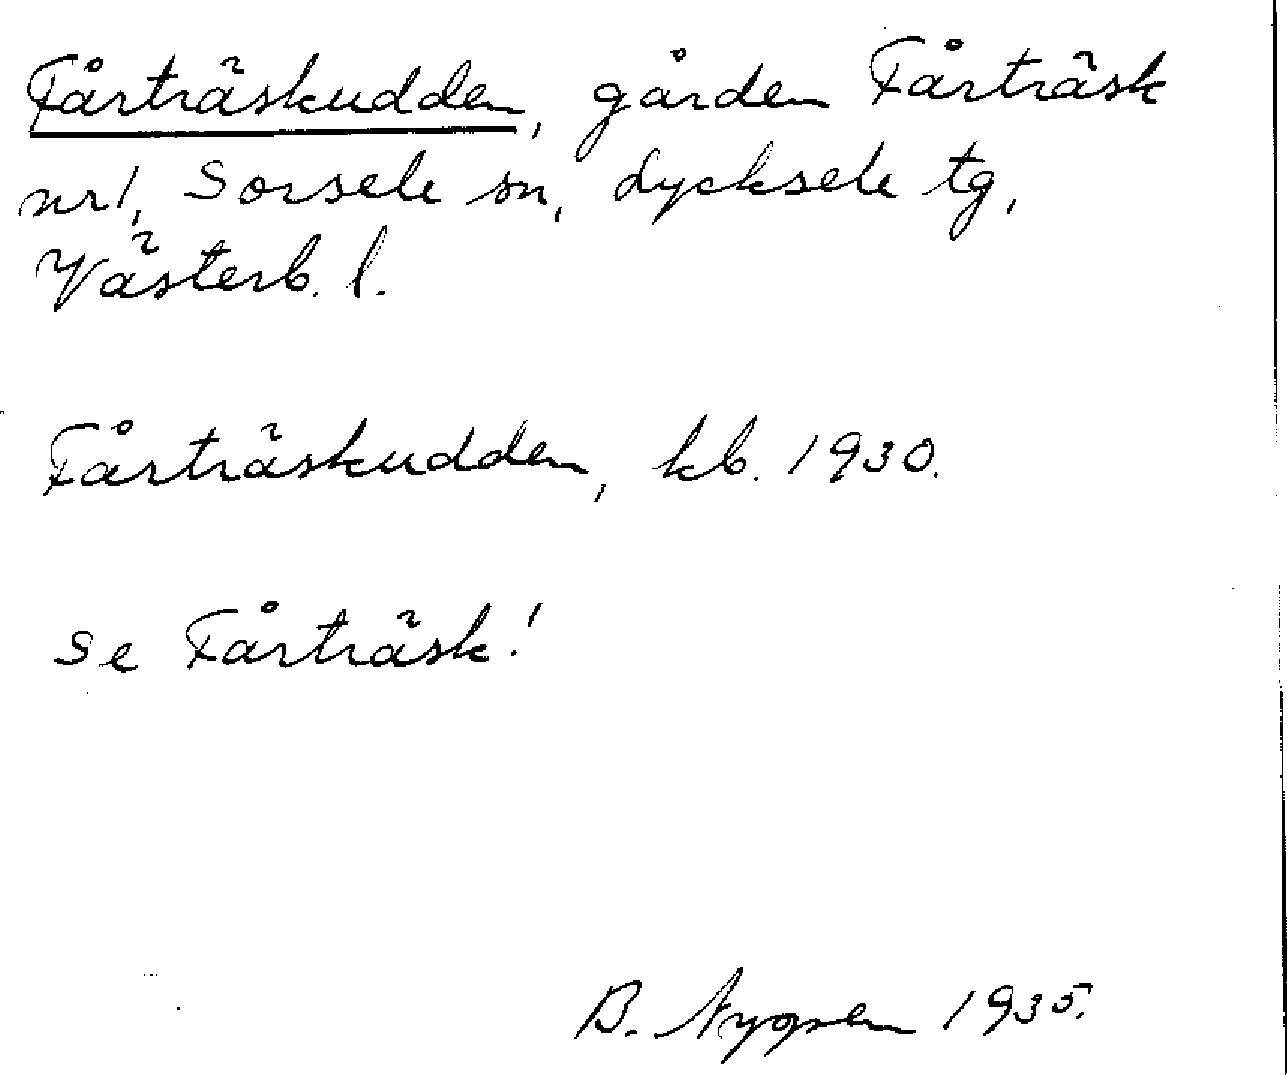 Fårträskudden, gården Fårträsk
nr 1, Sorsele sn, Lycksele tg,
Västerb. l.
Fårträskudden, kb. 1930.
Se Fårträsk!
B. 1935.